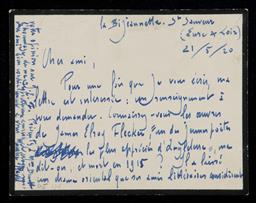 la Bijeannette. St Sauveur
(Eure & Loir)
21/5/20
Cher ami,
Pour une fois que je vous écris, ma
lettre est intéressée : un renseignement à
vous demander. Connaissez-vous les œuvres
de James Elroy Flecker, l'un des jeunes poètes
le plus apprécié d'Angleterre, me
dit-on, et mort en 1915 ? Il a laissé
un drame oriental que ses amis littéraires considèrent